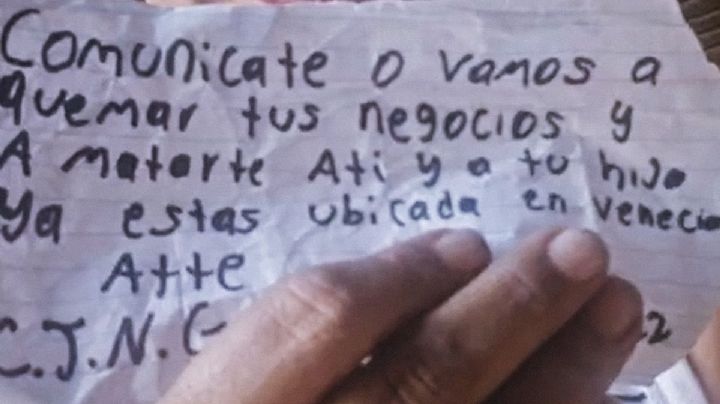 Comunicate o vamos a
quemar tus negocios y
A matarte Ati y a tu hijo
ya estas ubicada en Venecia
Atte
C.J.N.G